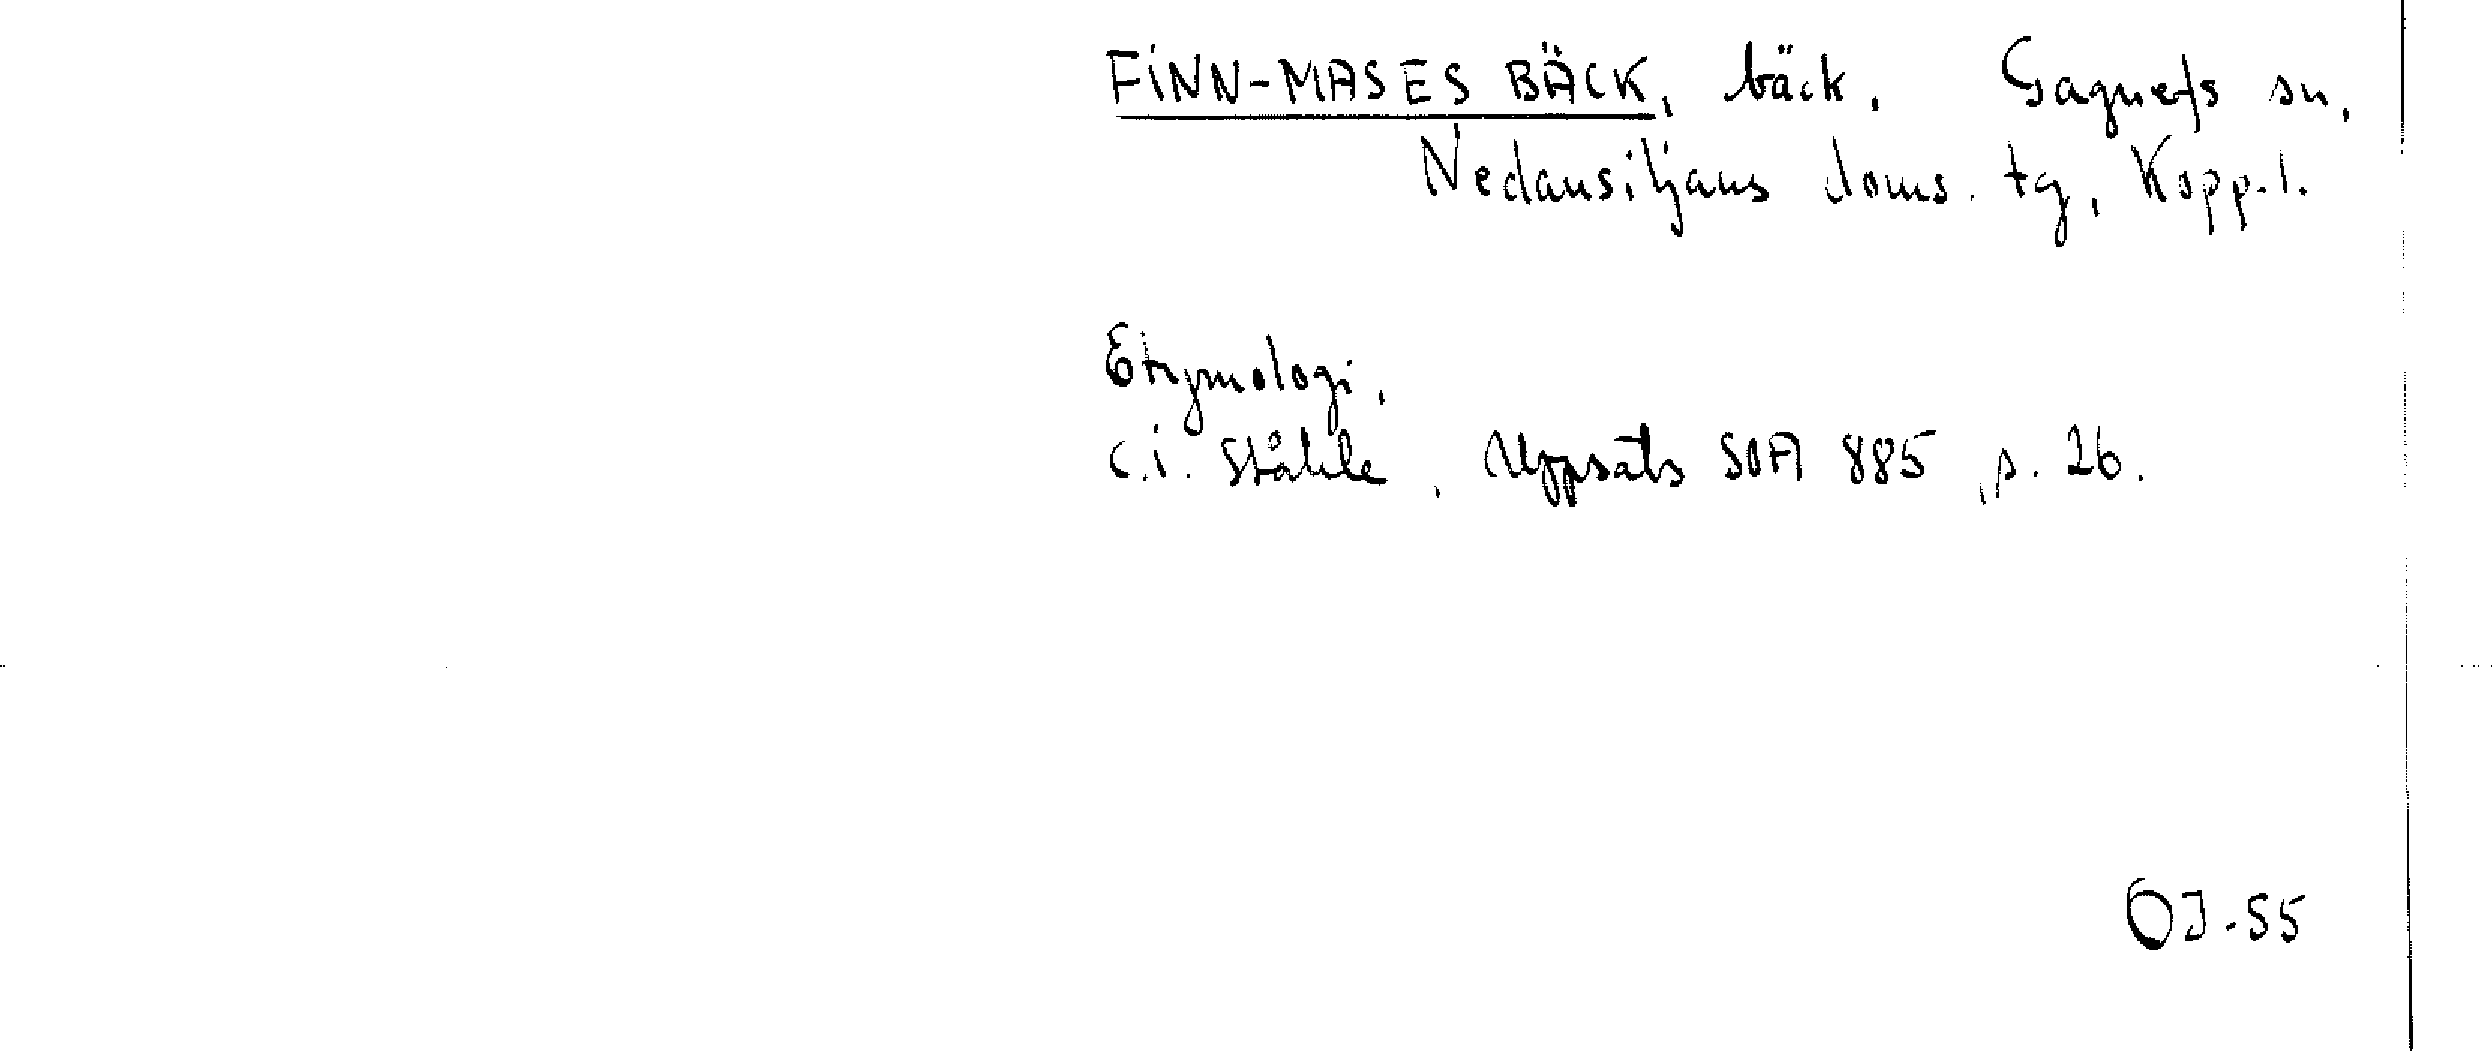 FINN-MASES BÄCK, bäck. Gagnefs sn,
Nedansiljans doms. tg, Kopp. l.
Etymologi,
C.I. Ståhle, Uppsats SOA 885, s. 26.
OJ-55